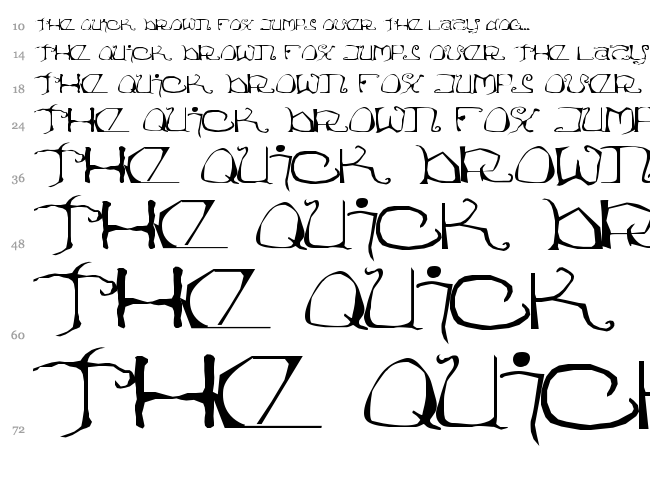 10 THE QUiCK bROWN FOX JUMPS OVER THE LAZY dOG...
14 THE QUiCK bROWN FOX JUMPS OVER THE LAZY
18 THE QUiCK bROWN FOX JUMPS OVER
24 THE QUiCK bROWN FOX JUMP
36 THE QUiCK bROWN
48 THE QUiCK bR
60 THE QUiCK
72 THE QUiCK